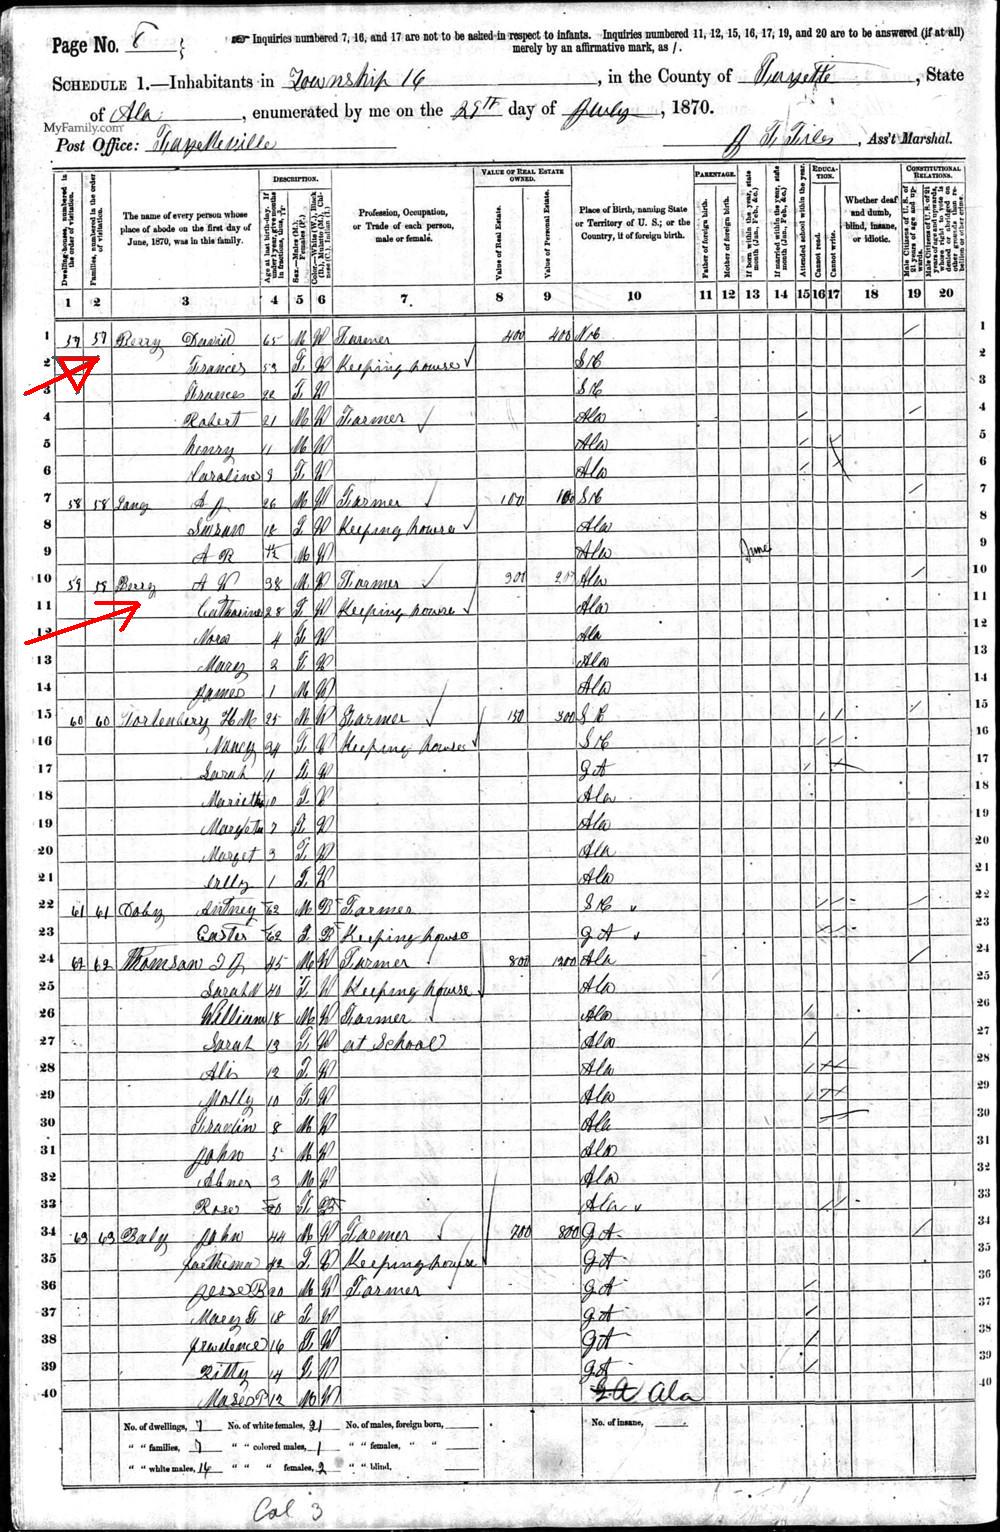 Page No. 8
Inquiries numbered 7, 16, and 17 are not to be asked in respect to infants. Inquiries numbered 11, 12, 15, 16, 17, 19, and 20 are to be answered (if at all)
merely by an affirmative mark, as /.
SCHEDULE 1.—Inhabitants in Township 16, in the County of Fayette, State
of Ala, enumerated by me on the 29th day of July, 1870.
MyFamily.com
Post Office: Fayetteville
Ass't Marshal.
DESCRIPTION. VALUE OF REAL ESTATE OWNED. PARENTAGE. EDUCATION. CONSTITUTIONAL RELATIONS.
Dwelling-houses, numbered in the order of visitation.
Families, numbered in the order of visitation.
The name of every person whose place of abode on the first day of June, 1870, was in this family.
Age at last birth-day. If under 1 year, give months in fractions, thus 3/12
Sex.—Males (M.), Females (F.)
Color.—White (W.), Black (B.), Mulatto (M.), Chinese (C.), Indian (I.)
Profession, Occupation, or Trade of each person, male or female.
Value of Real Estate.
Value of Personal Estate.
Place of Birth, naming State or Territory of U. S.; or the Country, if of foreign birth.
Father of foreign birth.
Mother of foreign birth.
If born within the year, state month (Jan., Feb., &c.)
If married within the year, state month (Jan., Feb., &c.)
Attended school within the year.
Cannot read.
Cannot write.
Whether deaf and dumb, blind, insane, or idiotic.
Male Citizens of U. S. of 21 years of age and upwards.
1 2 3 4 5 6 7 8 9 10 11 12 13 14 15 16 17 18 19 20
1 57 57 Berry David 65 M W Farmer 400 400 N C / 1
2 Frances 53 F W Keeping house S C 2
3 Frances 22 F W S C 3
4 Robert 21 M W Farmer Ala / / 4
5 Henry 11 M W Ala / 5
6 Caroline F W Ala / 6
7 58 58 Long A J 26 M W Farmer 100 100 S C / 7
8 Susan 18 F W Keeping house Ala 8
9 A R M W Ala June 9
10 59 59 Berry A W 38 M W Farmer 200 Ala / 10
11 Catharine 28 F W Keeping house Ala 11
12 Nora 4 F W Ala 12
13 Mary 2 F W Ala 13
14 James 1 M W Ala 14
15 60 60 H M 25 M W Farmer 150 300 S C / / / 15
16 Nancy F W Keeping house S C / / 16
17 Sarah 11 F W G A / 17
18 10 F W Ala 18
19 7 F W Ala 19
20 Marget 3 F W Ala 20
21 1 F W Ala 21
22 61 61 Doby Antney 62 M B Farmer S C / / / 22
23 Easter 62 F B Keeping house G A / / 23
24 62 62 Thomson 45 M W Farmer 800 1200 Ala / 24
25 Sarah 40 F W Keeping house Ala 25
26 William 18 M W Farmer Ala / 26
27 Sarah 13 F W at School Ala / 27
28 Alis 12 F W Ala / 28
29 Molly 10 F W Ala / 29
30 8 M W Ala 30
31 John 5 M W Ala 31
32 Abner 3 M W Ala 32
33 Rose F Ala / / 33
34 63 63 Baly John 44 M W Farmer 700 800 G A / 34
35 42 F W Keeping house G A 35
36 Jesse R 20 M W Farmer G A / 36
37 Mary F 18 F W G A / 37
38 Prudence 16 F W G A / 38
39 Kitty 14 F W G A / 39
40 12 M W Ala 40
No. of dwellings, 7 No. of white females, 21 No. of males, foreign born, No. of insane,
" " families, 7 " " colored males, 1 " " females, " "
" " white males, 16 " " " females, 2 " " blind,
Col 3